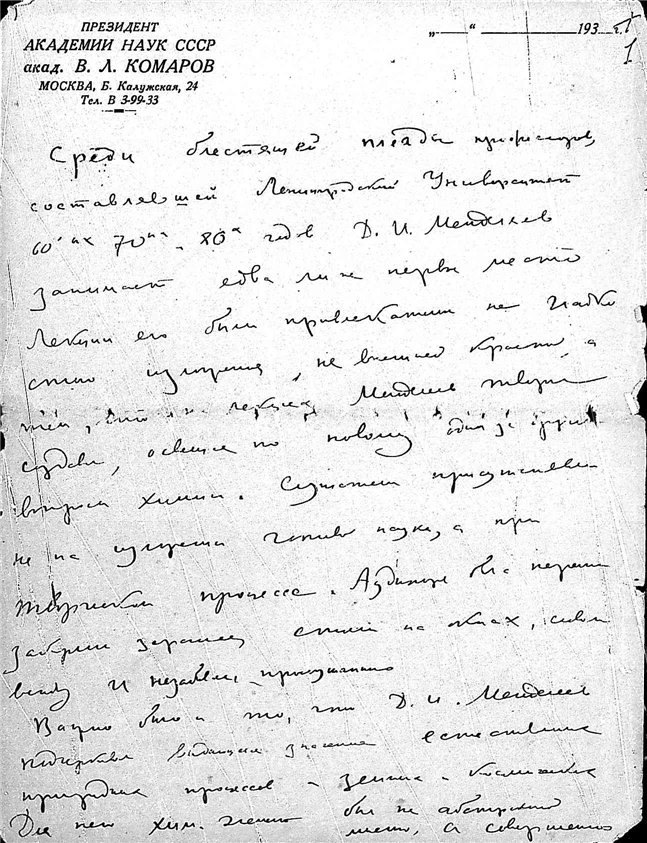 ПРЕЗИДЕНТ
АКАДЕМИИ НАУК СССР
акад. В. Л. КОМАРОВ
МОСКВА, Б. Калужская, 24
Тел. В 3-99-33
„ “ 193 г.
1
Среди блестящей плеяды профессоров,
составлявшей Ленинградский Университет
60ых 70ых 80х годов Д. И. Менделеев
занимает едва ли не первое место
Лекции его были привлекательны не гладко
изложения, не внешней красотой, а
тем, что на лекциях Менделеев творил
создавал, освещая по новому один за другим
вопросы химии. Слушатели присутствовали
не на изложении готовой науки, а при
творческом процессе. Аудитория была
заранее стояли на окнах,
всюду и
Важно было и то, что Д. И. Менделеев
подчеркивал значение естественных
природных процессов
Для него хим. был не абстрактной
а совершенно